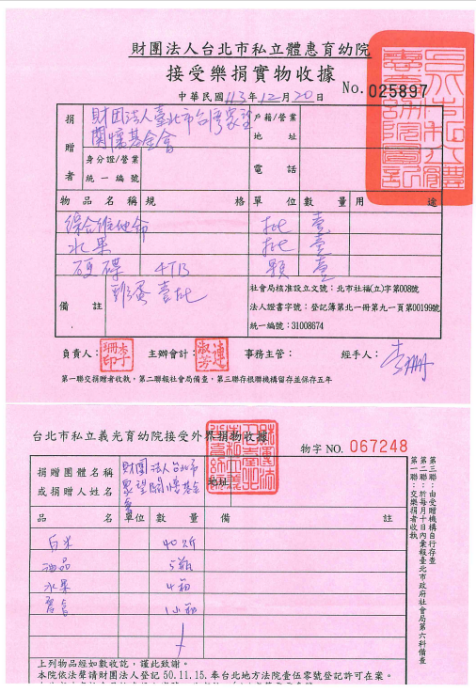 財團法人台北市私立體惠育幼院
接受樂捐實物收據
No. 025897
中華民國113年12月20日
捐贈者
財団法人臺北市台灣眾望
關懷基金會
戶籍/營業
地址
身分證/營業
統一編號
電話
物品名稱 規格 單位 數量 用途
綜合維他命 批 壹
水果 批 壹
硬碟 4TB 顆 壹
備註
雞蛋壹批
社會局核准設立文號:北市社福(立)字第008號
法人證書字號:登記簿第北一冊第九一頁第00199號
統一編號:31008674
負責人: 主辦會計: 事務主管: 經手人:
第一聯交捐贈者收執、第二聯報社會局備查、第三聯存根聯機構留存並保存五年
台北市私立義光育幼院接受外界捐物收據
物字 NO. 067248
捐贈團體名稱
或捐贈人姓名
財團法人台北市
眾望關懷基金
會
地址
品名 單位 數量 備註
白米 40斤
油品 5瓶
水果 4箱
1小箱
上列物品經如數收訖,謹此致謝。
本院依法聲請財團法人登記 50.11.15.奉台北地方法院壹伍零號登記許可在案。
第一聯:交樂捐者收執
第二聯:於每月十日內彙報臺北市政府社會局第六科備查
第三聯:由受贈機構自行存查